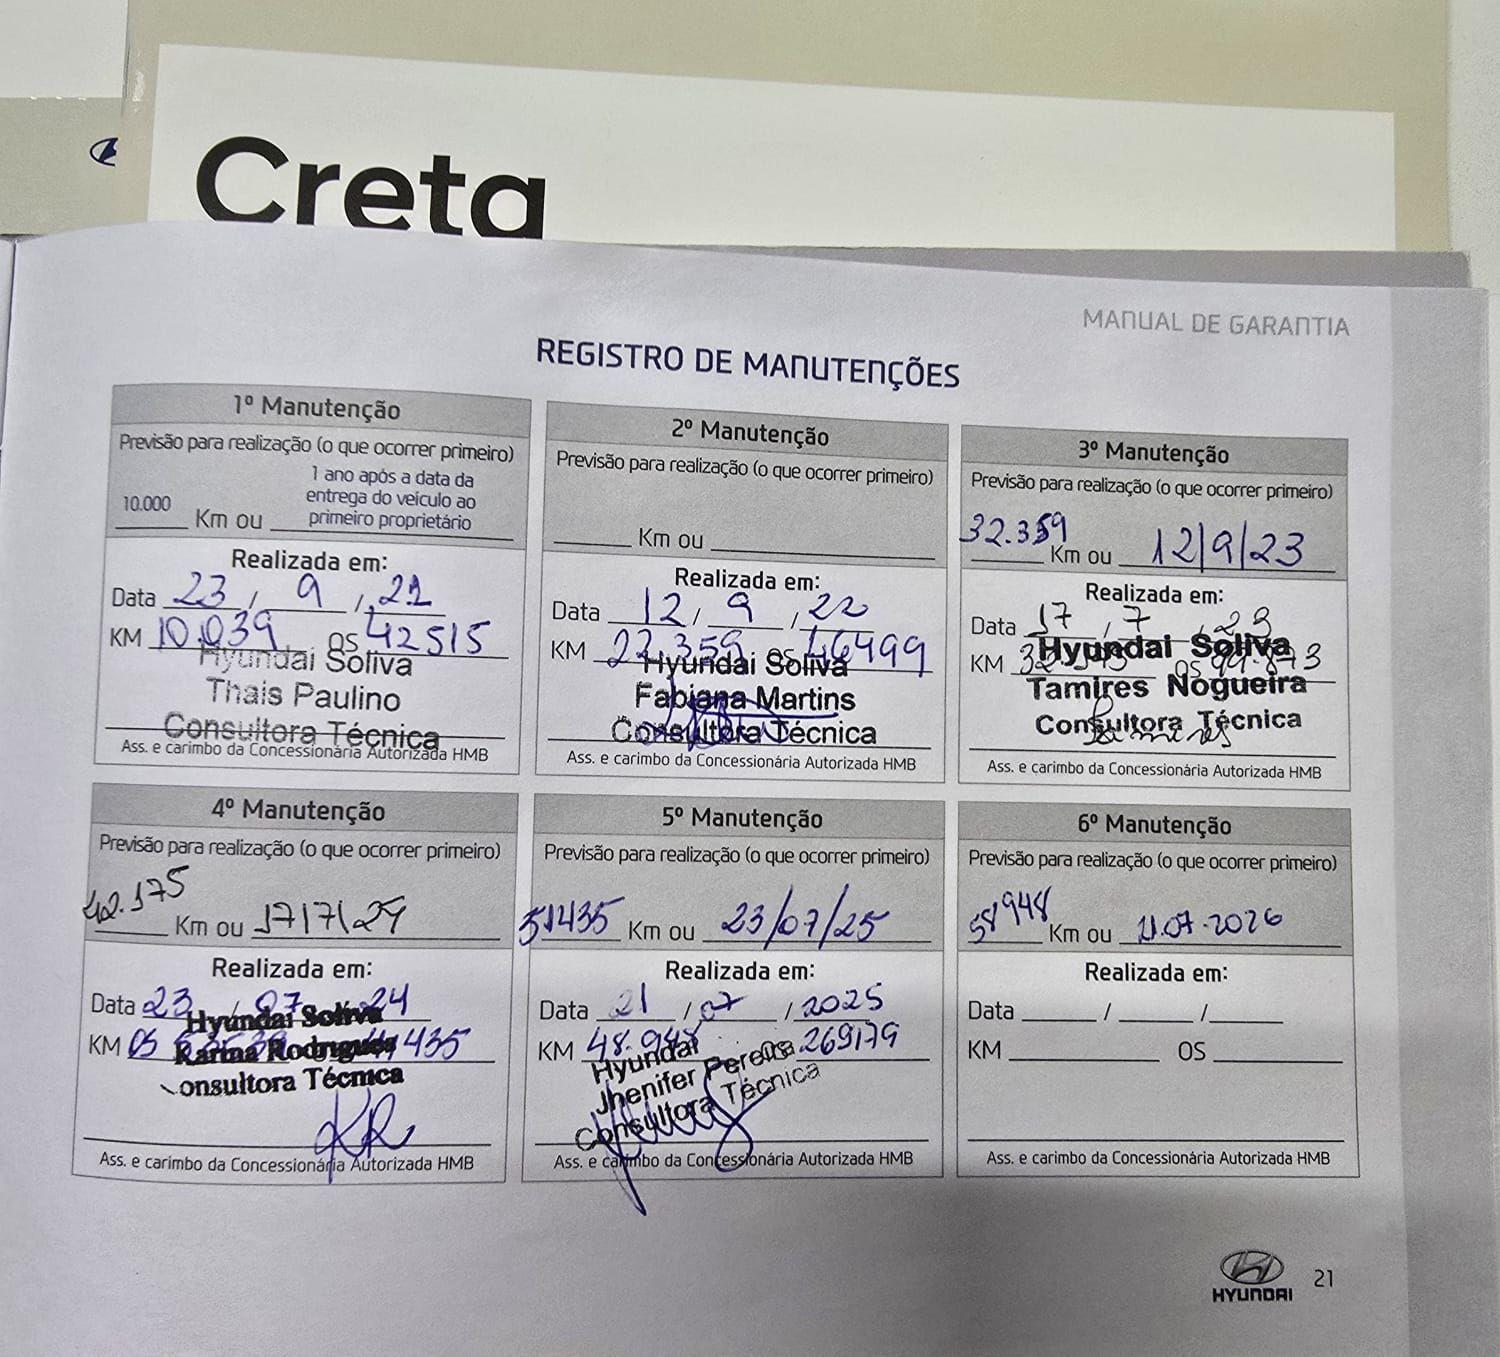 Creta
MANUAL DE GARANTIA
REGISTRO DE MANUTENÇÕES
1º Manutenção
Previsão para realização (o que ocorrer primeiro)
10.000 Km ou 1 ano após a data da entrega do veículo ao primeiro proprietário
Realizada em:
Data 23 / 9 / 21
KM 10.039 OS 42515
Hyundai Soliva
Thais Paulino
Consultora Técnica
Ass. e carimbo da Concessionária Autorizada HMB
2º Manutenção
Previsão para realização (o que ocorrer primeiro)
Km ou
Realizada em:
Data 12 / 9 / 22
KM 22.359 OS 46499
Hyundai Soliva
Fabiana Martins
Consultora Técnica
Ass. e carimbo da Concessionária Autorizada HMB
3º Manutenção
Previsão para realização (o que ocorrer primeiro)
32.359 Km ou 12/9/23
Realizada em:
Data 17 / 7 / 23
KM OS
Hyundai Soliva
Tamires Nogueira
Consultora Técnica
Ass. e carimbo da Concessionária Autorizada HMB
4º Manutenção
Previsão para realização (o que ocorrer primeiro)
42.175 Km ou 17/7/24
Realizada em:
Data 23 / 07 / 24
KM
Hyundai Soliva
Karina Rodrigues
onsultora Técnica
KR
Ass. e carimbo da Concessionária Autorizada HMB
5º Manutenção
Previsão para realização (o que ocorrer primeiro)
51435 Km ou 23/07/25
Realizada em:
Data 21 / 07 / 2025
KM 48.948 OS 269179
Hyundai
Jhenifer Pereira
Consultora Técnica
Ass. e carimbo da Concessionária Autorizada HMB
6º Manutenção
Previsão para realização (o que ocorrer primeiro)
58948 Km ou 21.07.2026
Realizada em:
Data / /
KM OS
Ass. e carimbo da Concessionária Autorizada HMB
HYUNDAI 21